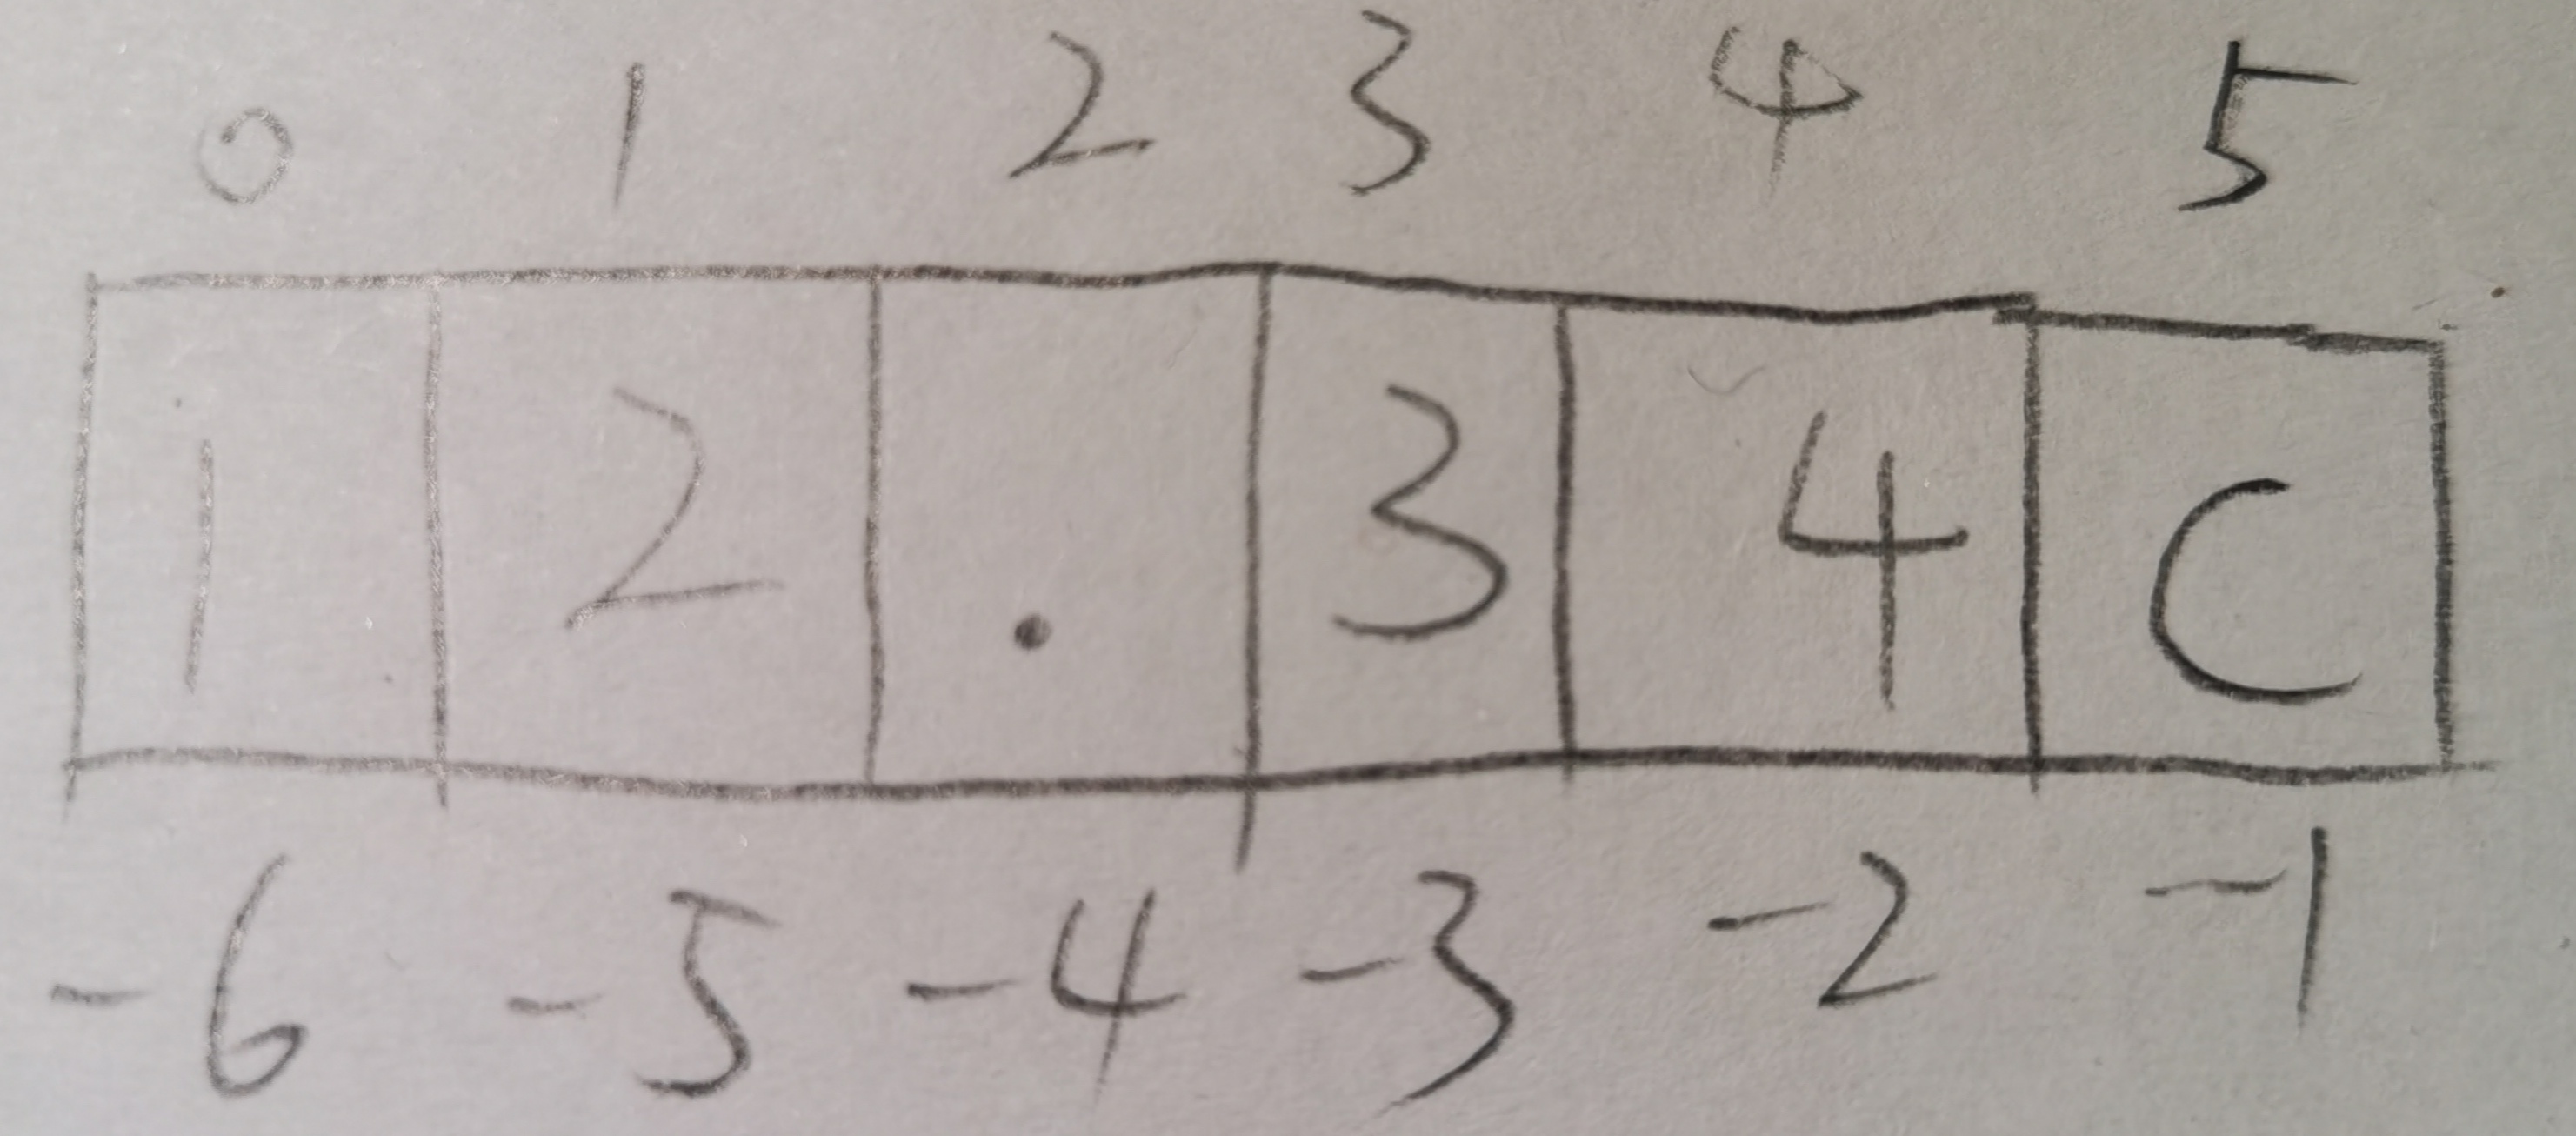 0 1 2 3 4 5
1 2 . 3 4 C
-6 -5 -4 -3 -2 -1